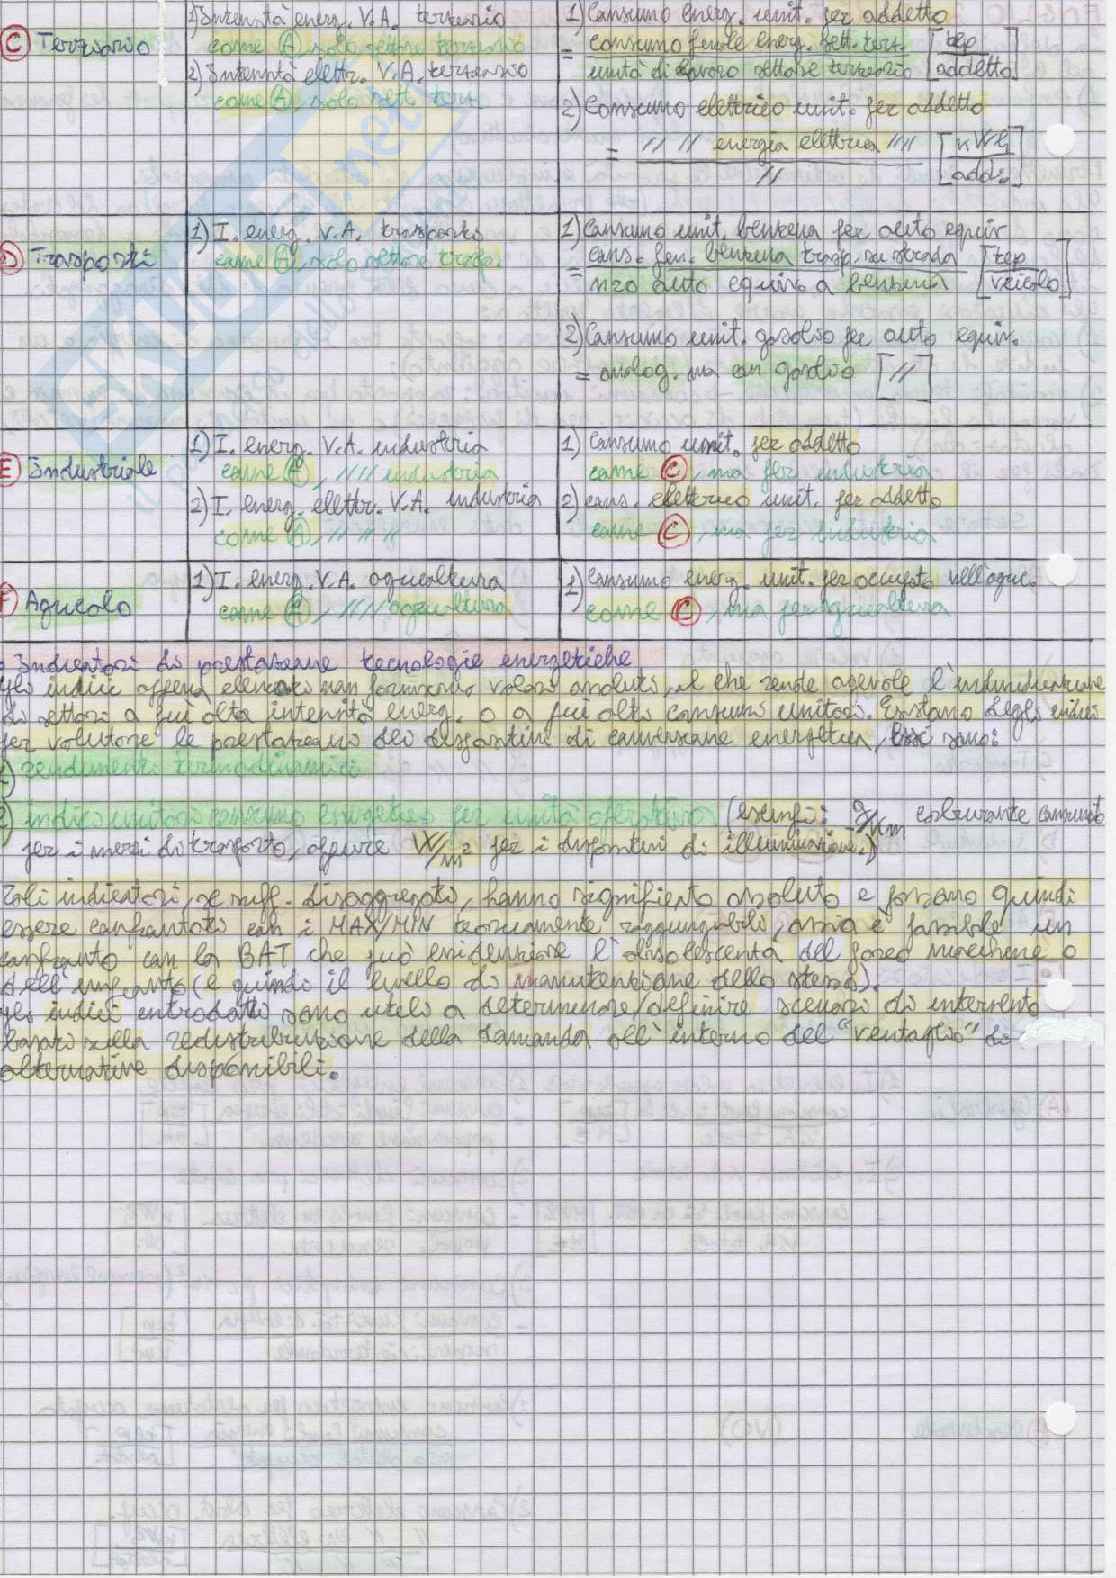 1) Intensità energ. V.A. terziario
C Terziario
come A, solo settore terziario
2) Intensità elettr. V.A. terziario
come A, solo sett. terz.
1) Consumo energ. unit. per addetto
= consumo finale energ. sett. terz. [tep
unità di lavoro settore terziario addetto]
2) Consumo elettrico unit. per addetto
= // // energia elettrica // // [kWh
// add.]
D Trasporti
1) I. energ. V.A. trasporto
come A, solo settore trasp.
1) Consumo unit. benzina per auto equiv
= cons. fin. benzina trasp. su strada [tep
n.ro auto equiv. a benzina veicolo]
2) Consumo unit. gasolio per auto equiv.
= analog. ma con gasolio [//]
E Industriale
1) I. energ. V.A. industria
come A, // // industria
2) I. energ. elettr. V.A. industria
come A, // // //
1) Consumo unit. per addetto
come C, ma per industria
2) cons. elettrico unit. per addetto
come C, ma per industria
F Agricolo
1) I. energ. V.A. agricoltura
come A, // // agricoltura
1) Consumo energ. unit. per occupato nell'agric.
come C, ma per agricoltura
Indicatori di prestazione tecnologie energetiche
Gli indici appena elencati non forniscono valori assoluti, il che rende agevole l'individuazione
di settori a più alta intensità energ. o a più alti consumi unitari. Esistono degli indici
per valutare le prestazioni dei dispositivi di conversione energetica, Essi sono:
1) rendimenti termodinamici
2) indici unitari consumo energetico per unità (esempi: g/km carburante consumato
per i mezzi di trasporto, oppure W/m² per i dispositivi di illuminazione.)
Tali indicatori, se suff. disaggregati, hanno significato assoluto e possono quindi
essere confrontati con i MAX/MIN teoricamente raggiungibili, ossia è possibile un
confronto con la BAT che può evidenziare l'obsolescenza del parco macchine o
dell'impianto (e quindi il livello di manutenzione dello stesso).
Gli indici introdotti sono utili a determinare/definire scenari di intervento
basati sulla redistribuzione della domanda all'interno del "ventaglio" di
alternative disponibili.